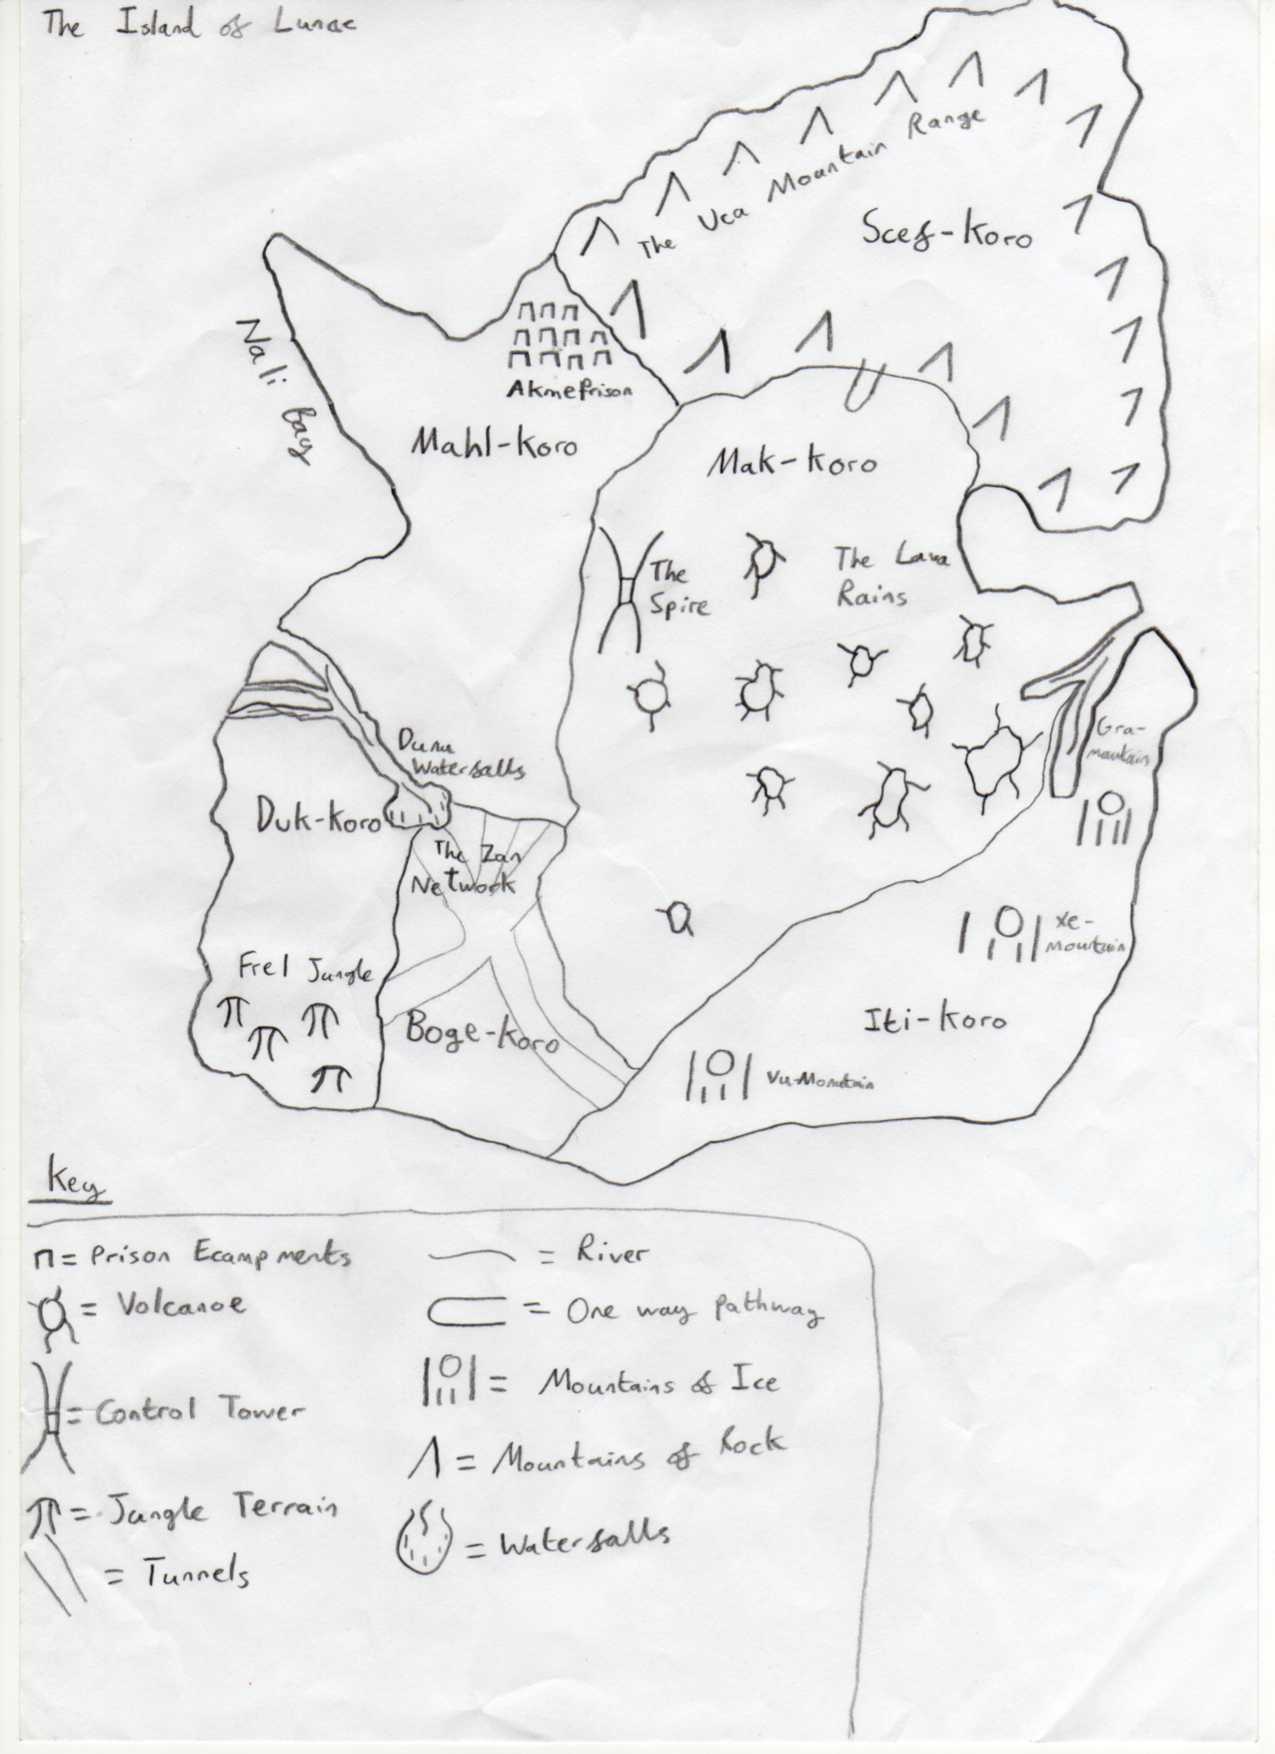 The Island of Lunae
The Uca Mountain Range
Scef-Koro
Nali Bay
Akme Prison
Mahl-Koro
Mak-Koro
The
Spire
The Lava
Rains
Dunu
Waterfalls
Gra-
mountain
Duk-Koro
The Zan
Network
Xe-
mountain
Frel Jungle
Boge-Koro
Iti-Koro
Vu-Mountain
Key
= Prison Ecampments
= River
= Volcanoe
= One way pathway
= Control Tower
= Mountains of Ice
= Mountains of Rock
= Jungle Terrain
= Waterfalls
= Tunnels